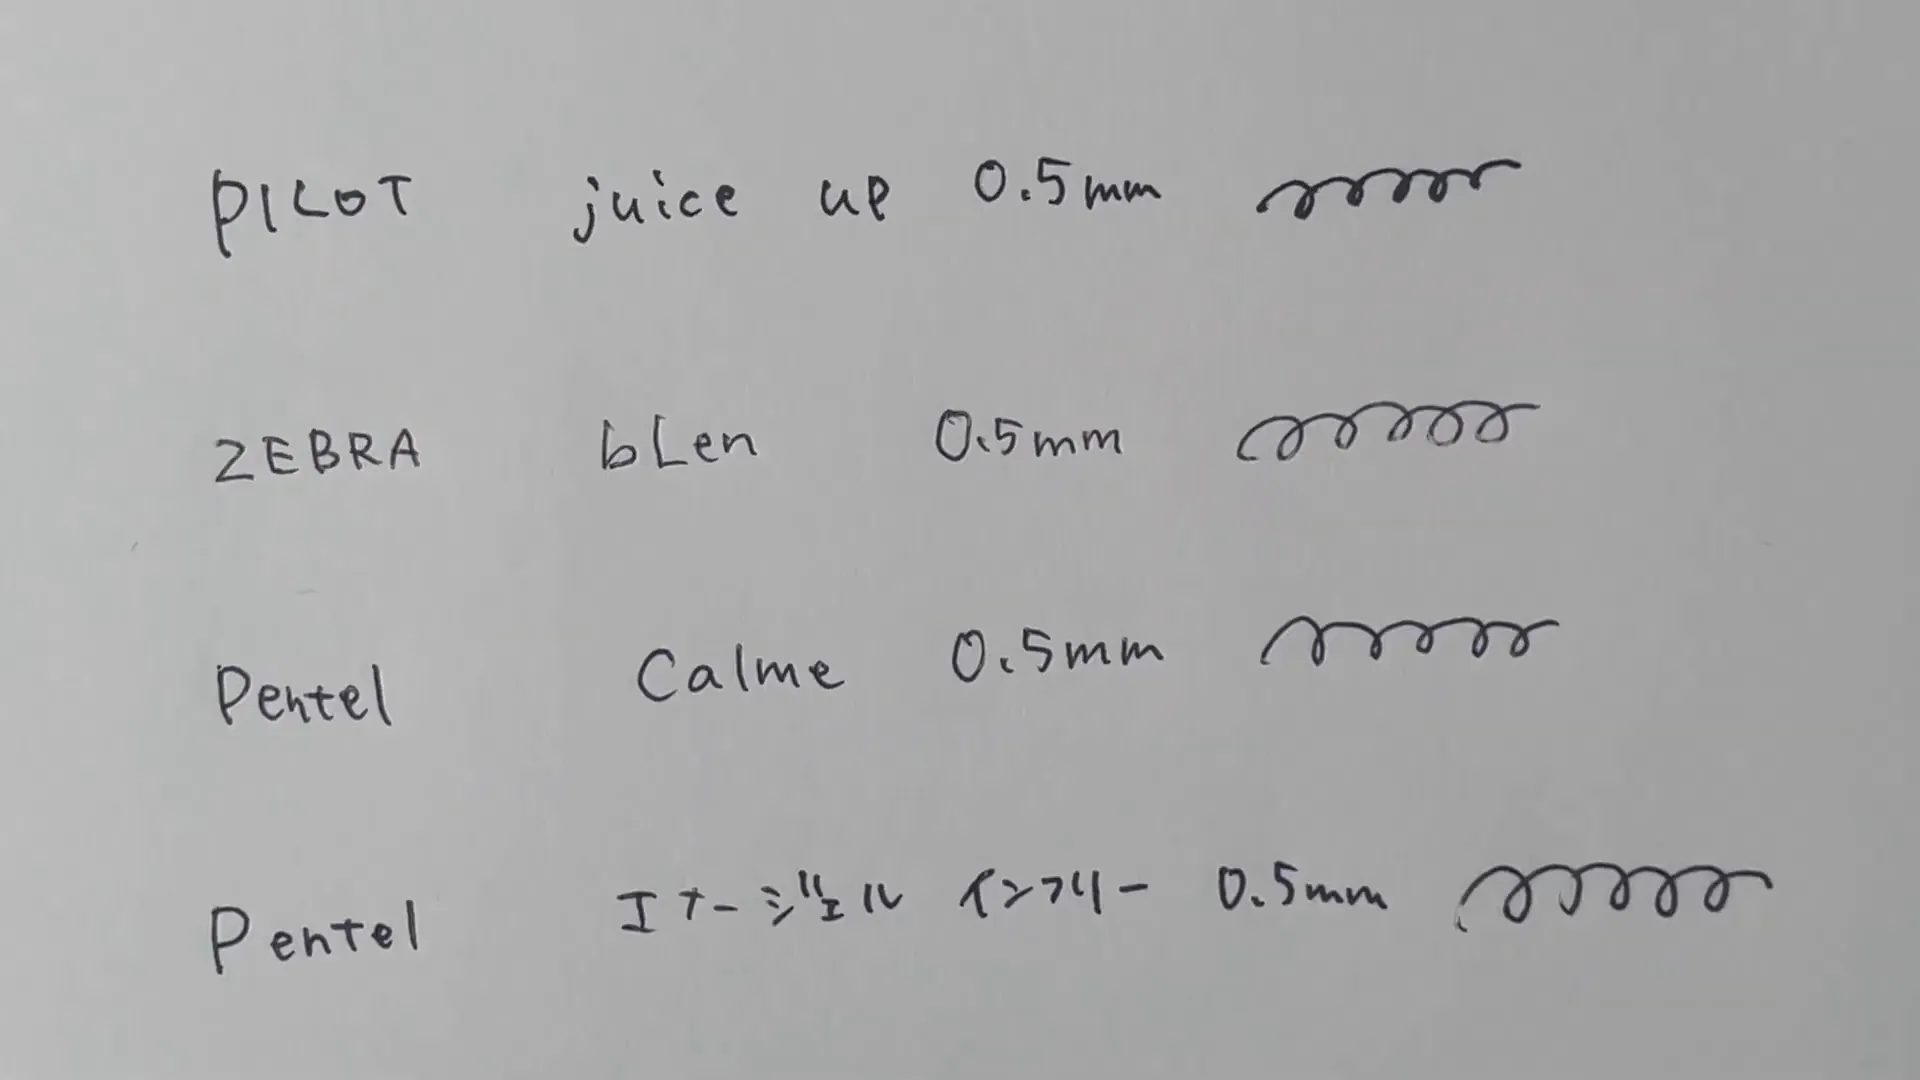 PILOT juice up 0.5mm
ZEBRA bLen 0.5mm
Pentel Calme 0.5mm
Pentel エナージェル インフリー 0.5mm